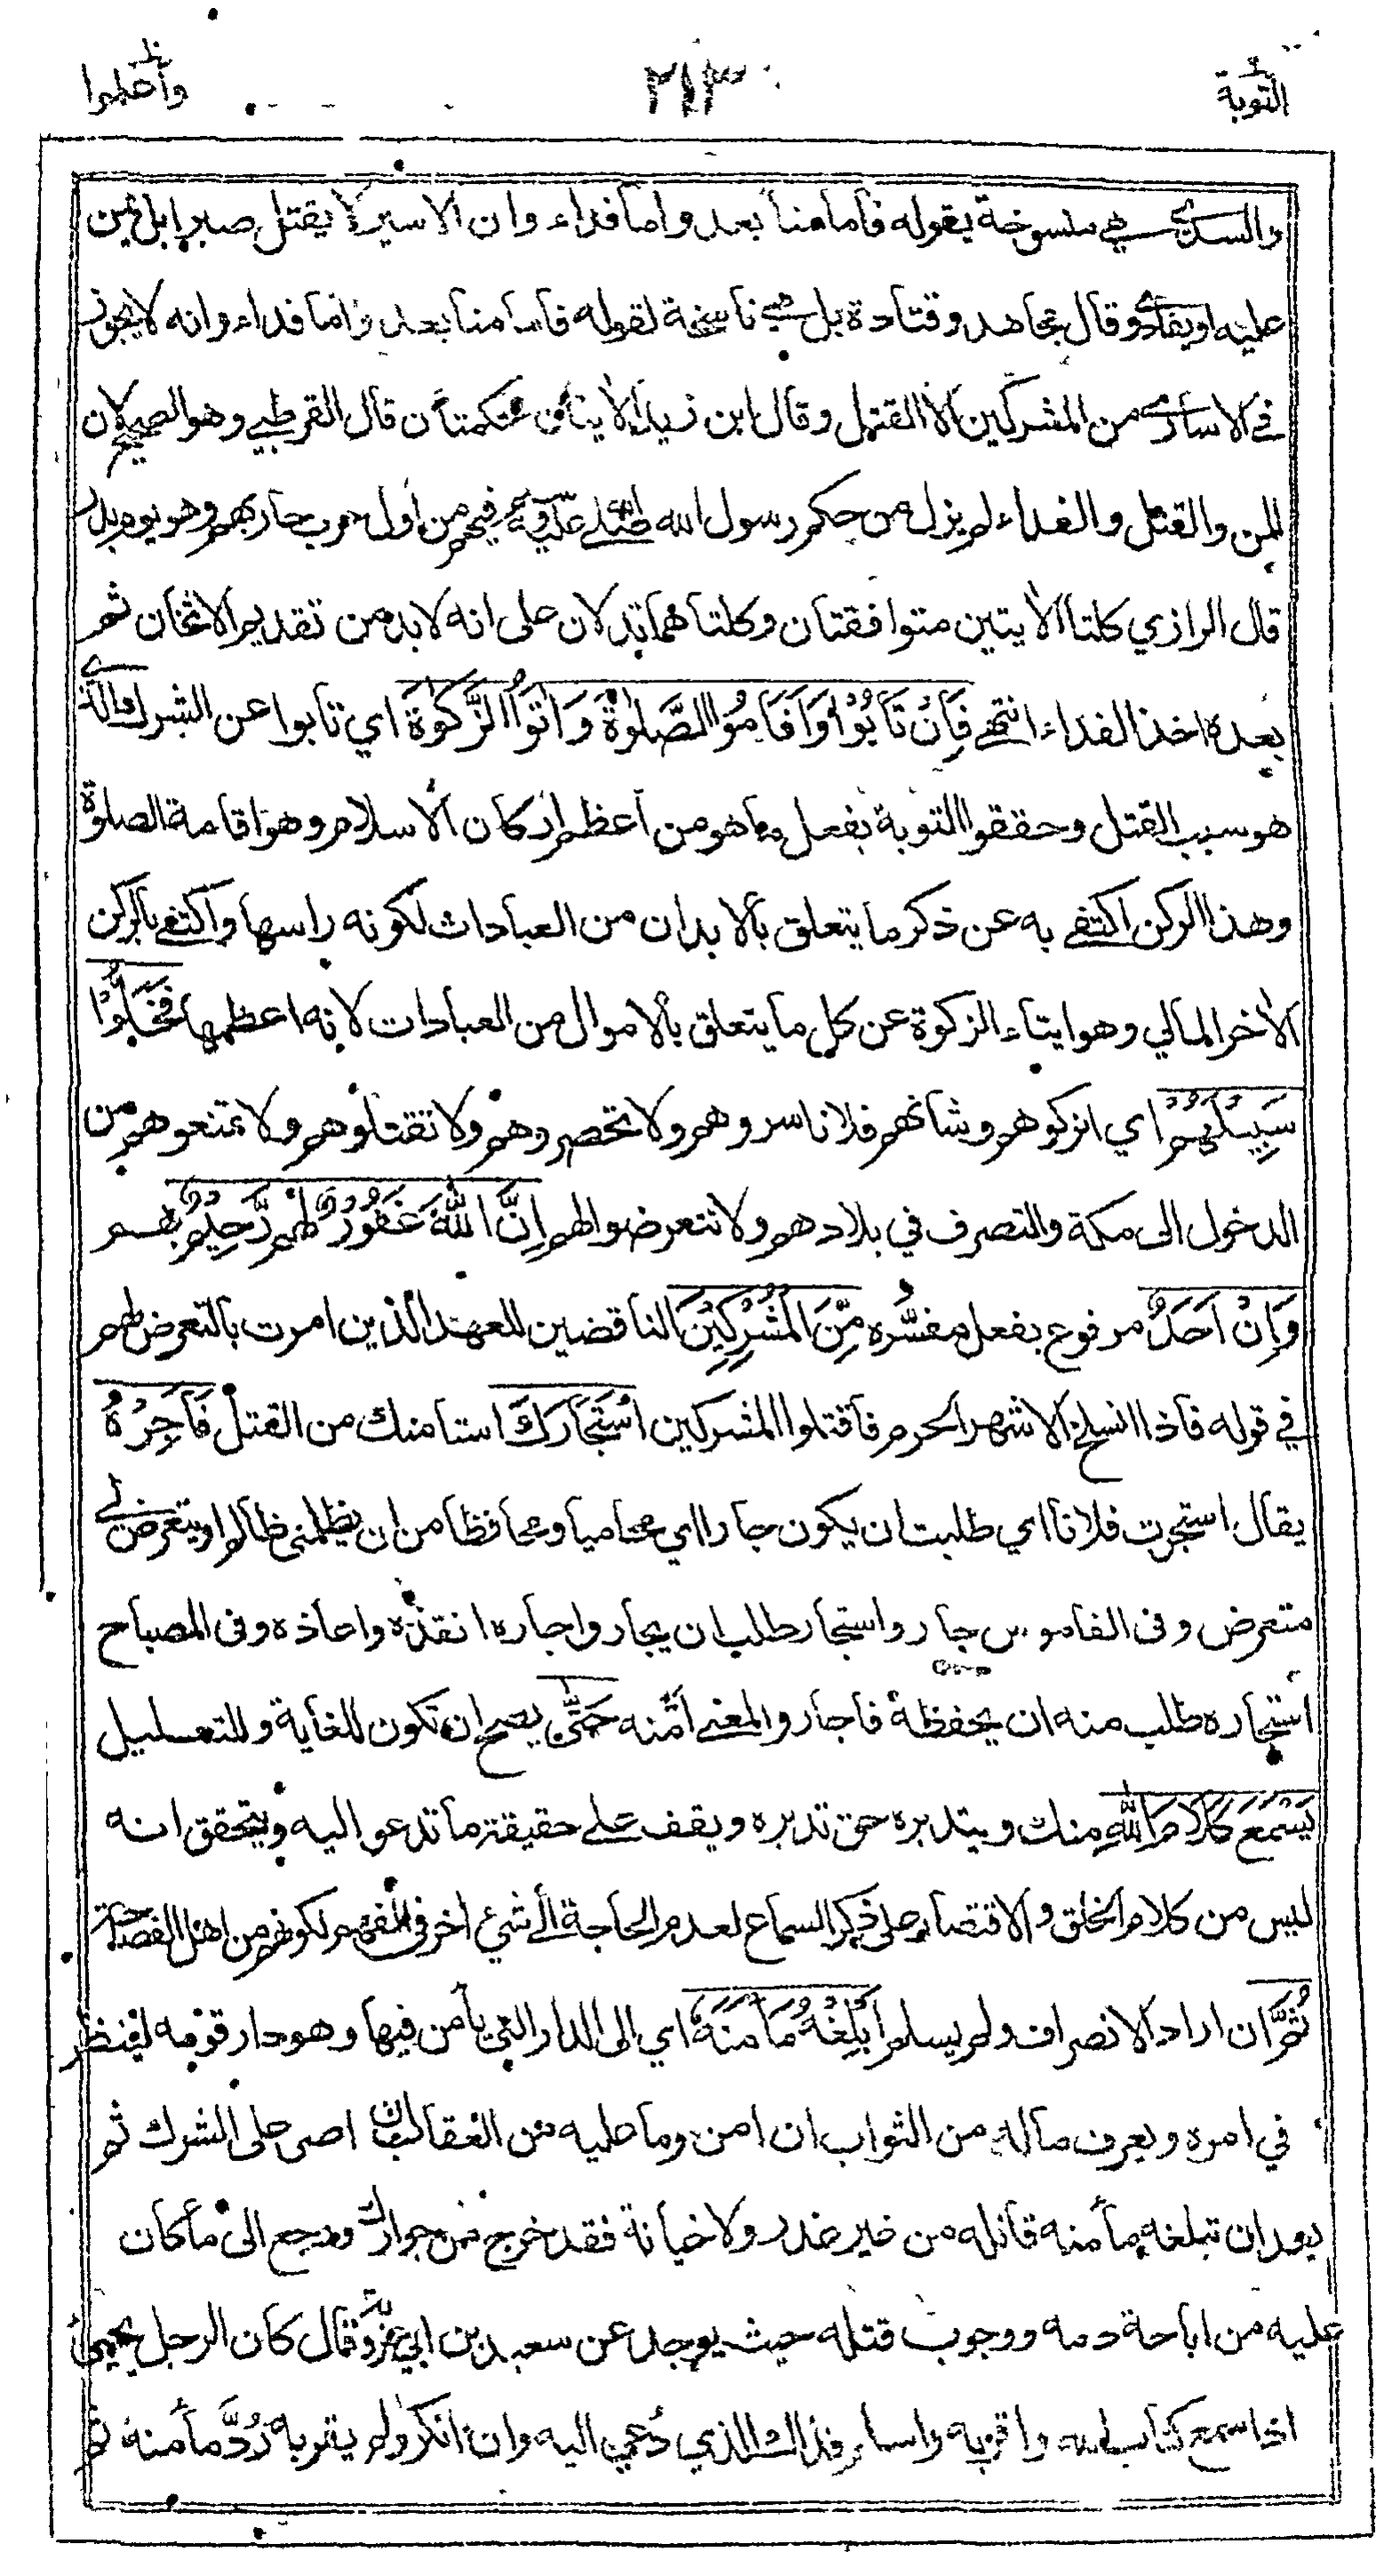 التوبة ٢١٣ واعلموا
والسدي هي منسوخة بقوله فأما منا بعد وأما فداء وان الاسير لا يقتل صبرا بل يمن
عليه او يفادى وقال مجاهد وقتادة بل هي ناسخة لقوله فأما منا بعد وأما فداء وانه لا يجوز
في الاسارى من المشركين الا القتل وقال ابن زيد الآيتان محكمتان قال القرطبي وهو الصحيح لان
المن والقتل والفداء لم يزل من حكم رسول الله صلى الله عليه وسلم فيهم من اول حرب حاربهم وهو يوم بدر
قال الرازي كلتا الآيتين متوافقتان وكلتاهما تدلان على انه لا بد من تقديم الاثخان ثم
بعده اخذ الفداء انتهى فَإِنْ تَابُوْا وَأَقَامُوا الصَّلٰوةَ وَاٰتَوُا الزَّكٰوةَ اي تابوا عن الشرك الذي
هو سبب القتل وحققوا التوبة بفعل ما هو من اعظم اركان الاسلام وهو اقامة الصلوة
وهذا الركن اكتفى به عن ذكر ما يتعلق بالابدان من العبادات لكونه راسها واكتفى بالركن
الاخر المالي وهو ايتاء الزكوة عن كل ما يتعلق بالاموال من العبادات لانه اعظمها فَخَلُّوْا
سَبِيْلَهُمْ اي اتركوهم وشأنهم فلا تاسروهم ولا تحصروهم ولا تقتلوهم ولا تمنعوهم من
الدخول الى مكة والتصرف في بلادهم ولا تتعرضوا لهم إِنَّ اللّٰهَ غَفُوْرٌ لهم رَّحِيْمٌ بهم
وَإِنْ اَحَدٌ مرفوع بفعل مفسره مِّنَ الْمُشْرِكِيْنَ الناقضين للعهد الذين امرت بالتعرض لهم
في قوله فاذا انسلخ الاشهر الحرم فاقتلوا المشركين اسْتَجَارَكَ استامنك من القتل فَأَجِرْهُ
يقال استجرت فلانا اي طلبت ان يكون جارا اي محاميا ومحافظا من ان يظلمني ظالم او يتعرض لي
متعرض وفى القاموس جار واستجار طلب ان يجار واجاره انقذه واعاذه وفى المصباح
استجاره طلب منه ان يحفظه فاجار والمعنى امنه حَتّٰى يصح ان تكون للغاية وللتعليل
يَسْمَعَ كَلَامَ اللّٰهِ منك ويتدبره حق تدبره ويقف على حقيقة ما تدعو اليه ويتحقق انه
ليس من كلام الخلق والاقتصار على ذكر السماع لعدم الحاجة الى شيء اخر فى الفهم لكونهم من اهل الفصاحة
ثُمَّ ان اراد الانصراف ولم يسلم أَبْلِغْهُ مَأْمَنَهُ اي الى الدار التي يأمن فيها وهو دار قومه لينظر
في امره ويعرف ماله من الثواب ان امن وما عليه من العقاب ان اصر على الشرك ثم
بعد ان تبلغه مأمنه قاتله من غير غدر ولا خيانة فقد خرج من جوارك ورجع الى ما كان
عليه من اباحة دمه ووجوب قتله حيث يوجد عن سعيد بن ابي عروة قال كان الرجل يجيئ
اذا سمع كتاب الله واقر به واسلم فذاك الذي دُعي اليه وان انكر ولم يقر به رُدَّ مأمنه ثم